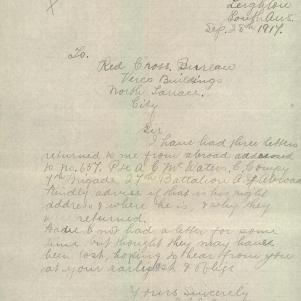 Leighton
South Aus.
Sep. 28th 1917.
To.
Red Cross Bureau
Verco Buildings
North Terrace.
City
Sir
I have had three letters
returned to me from abroad addressed
to no. 657. Pte A. E. McWaters, C. Company
7th Brigade 27th Battalion A.
Kindly advise if that is his right
address & where he is & why they
returned.
I had not had a letter for some
time but thought they may have
been lost, hoping to hear from you
at your earliest & oblige
Yours Sincerely